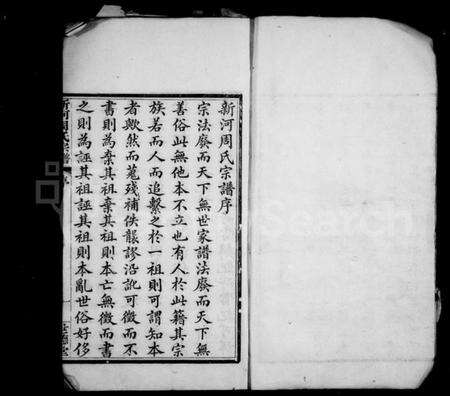 新河周氏宗譜序
宗法廢而天下無世家譜法廢而天下無
善俗此無他本不立也有人於此籍其宗
族若而人而追繫之於一祖則可謂知本
者歟然而蒐殘補佚襲謬沿訛可徵而不
書則為棄其祖棄其祖則本亡無徵而書
之則為誣其祖誣其祖則本亂世俗好侈
新河周氏宗譜